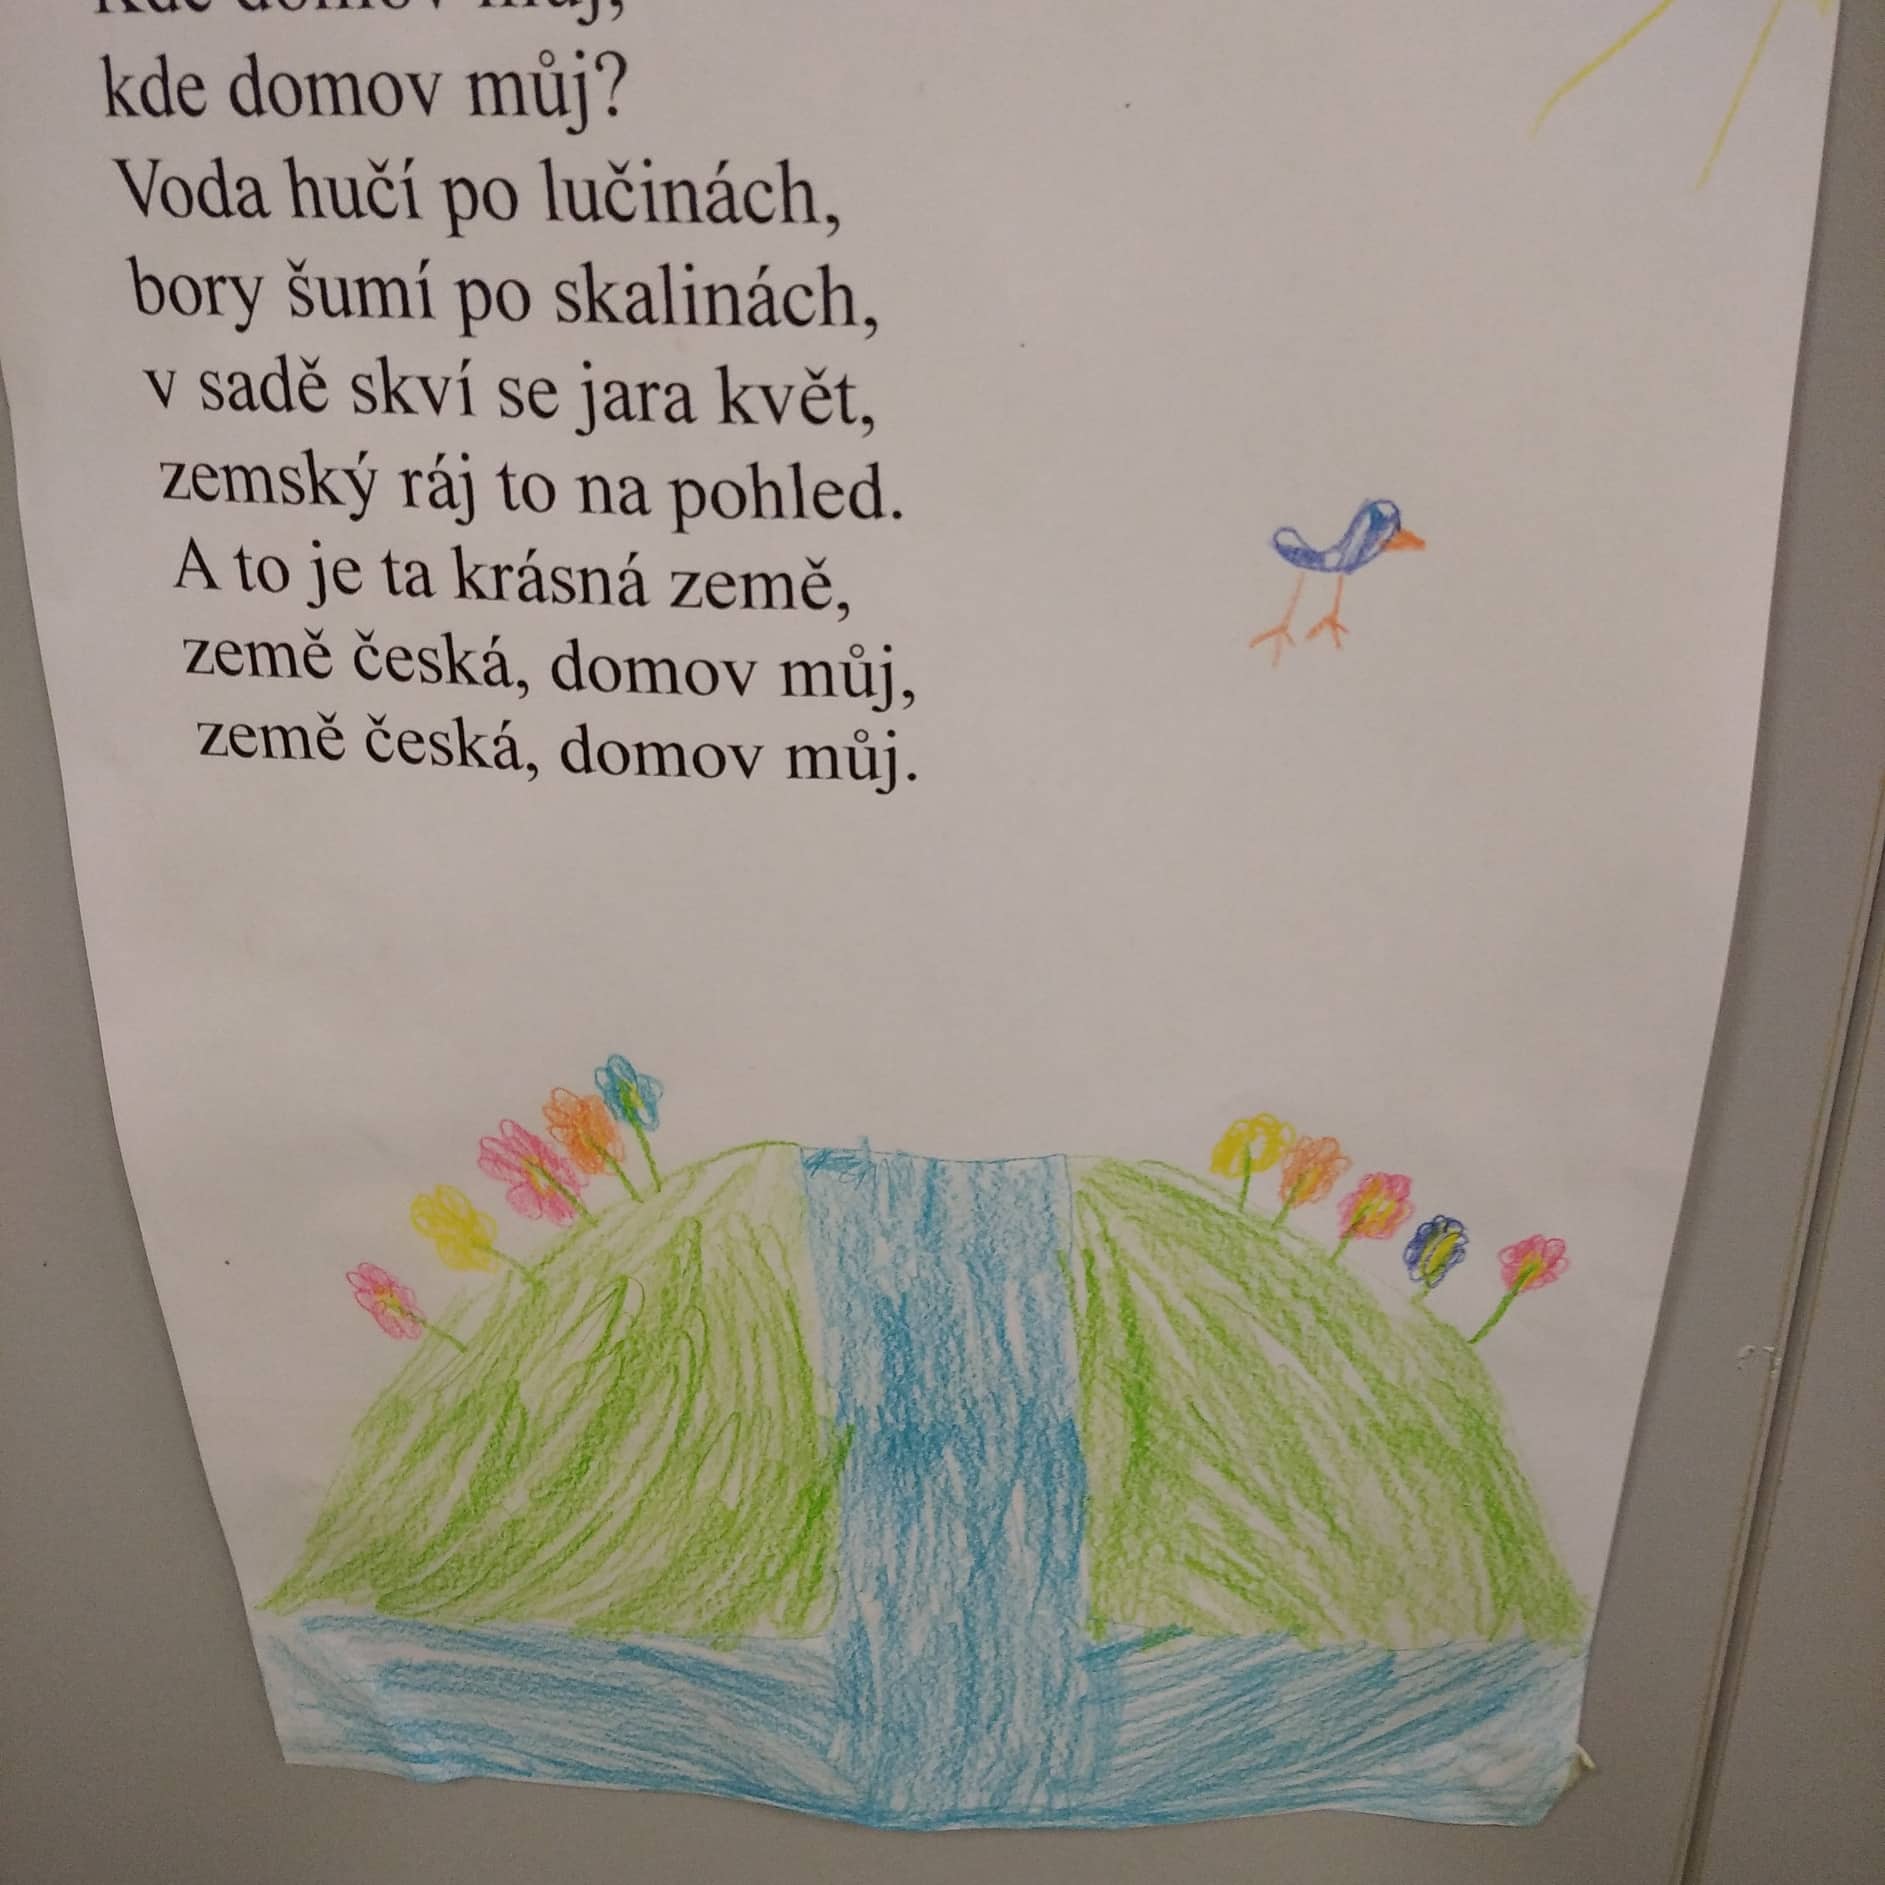 Kde domov můj,
kde domov můj?
Voda hučí po lučinách,
bory šumí po skalinách,
v sadě skví se jara květ,
zemský ráj to na pohled.
A to je ta krásná země,
země česká, domov můj,
země česká, domov můj.